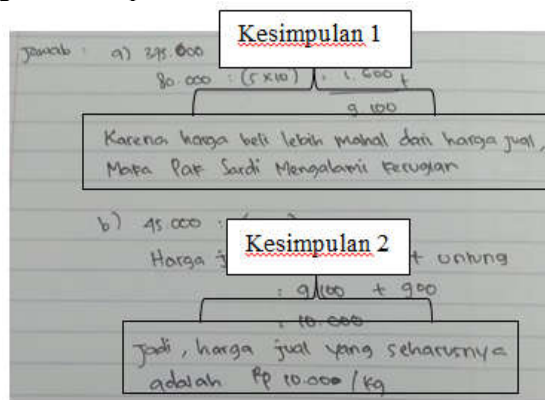 Kesimpulan 1
Jawab : a) 375.000
80.000 : (5 x 10) : 1.600 +
9.100
Karena harga beli lebih mahal dari harga jual,
Maka Pak Sardi Mengalami kerugian
b) 45 000 :
Kesimpulan 2
Harga + untung
: 9100 + 900
: 10.000
Jadi, harga jual yang seharusnya
adalah Rp 10.000 / Kg